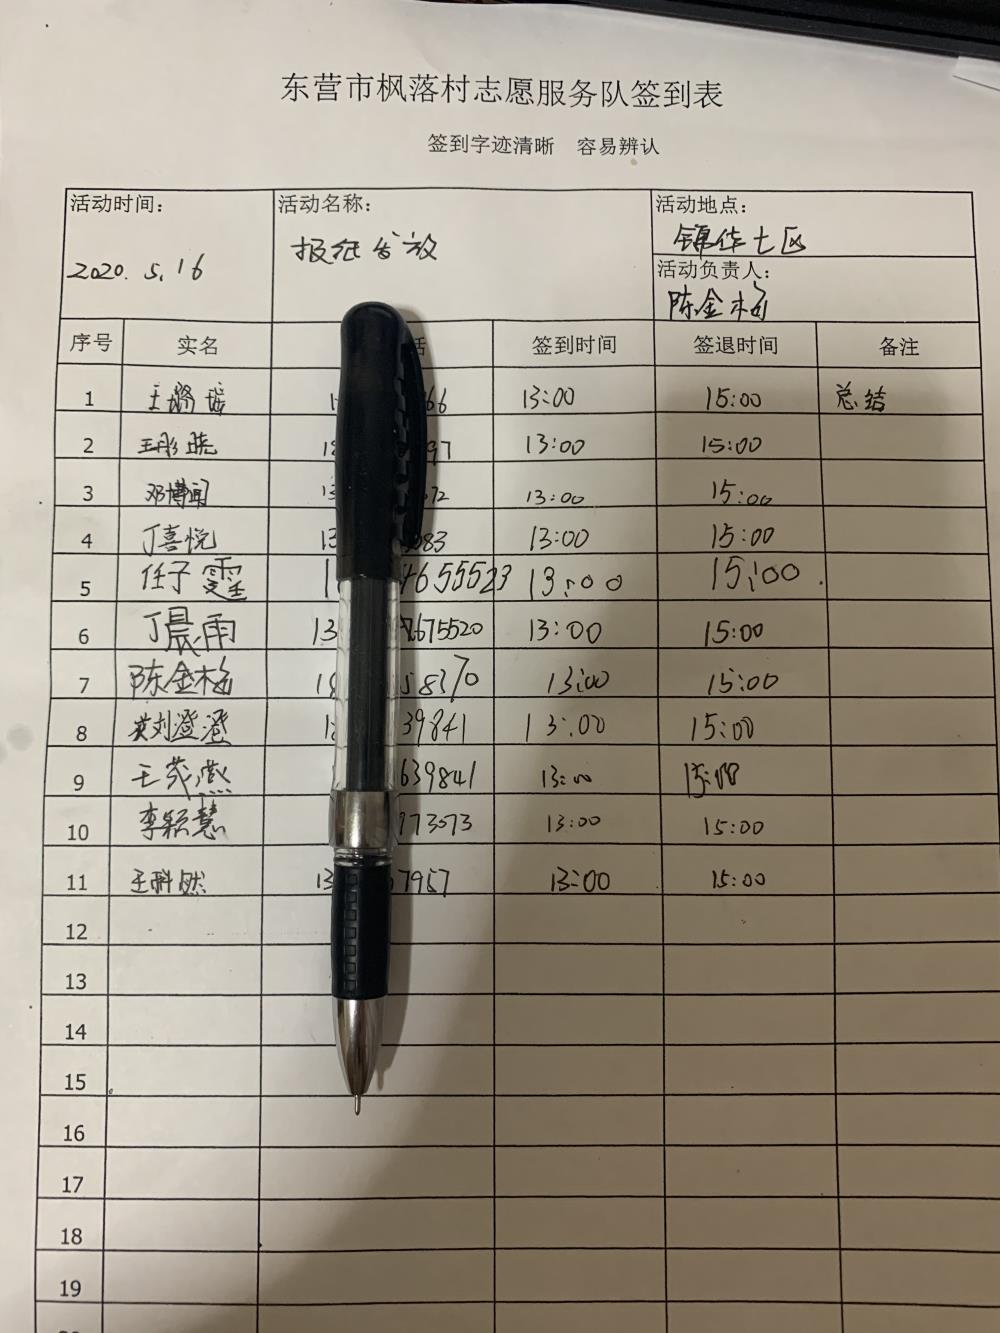 东营市枫落村志愿服务队签到表
签到字迹清晰 容易辨认
活动时间： 活动名称： 活动地点：
锦华七区
2020.5.16 报纸发放
活动负责人：
陈金梅
序号 实名 话 签到时间 签退时间 备注
1 王璐瑶 1 66 13:00 15:00 总结
2 王彤晓 18 97 13:00 15:00
3 邓博闻 13 672 13:00 15:00
4 丁喜悦 13 083 13:00 15:00
5 任子霆 1 4655523 13:00 15:00.
6 丁晨雨 13 675520 13:00 15:00
7 陈金梅 18 58370 13:00 15:00
8 刘澄澄 1 39841 13:00 15:00
9 王茂燕 639841 13:00 15:00
10 李颖慧 973073 13:00 15:00
11 王科然 13 7957 13:00 15:00
12
13
14
15
16
17
18
19